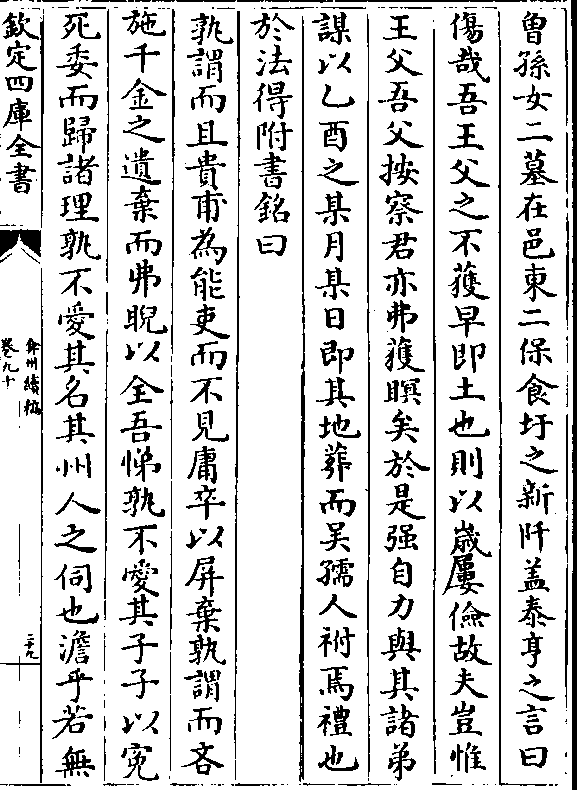 曽孫女二墓在邑東二保食圩之新阡盖泰亨之言曰
傷哉吾王父之不獲早即土也則以歳屢儉故夫豈惟
王父吾父按察君亦弗獲瞑矣於是强自力與其諸弟
謀以乙酉之某月某日即其地葬而吴孺人祔焉禮也
於法得附書銘曰
孰謂而且貴甫為能吏而不見庸卒以屏棄孰謂而吝
施千金之遺棄而弗睨以全吾悌孰不愛其子子以寃
死委而歸諸理孰不愛其名其州人之伺也澹乎若無
欽定四庫全書
弇州續稿
卷九十
二十九